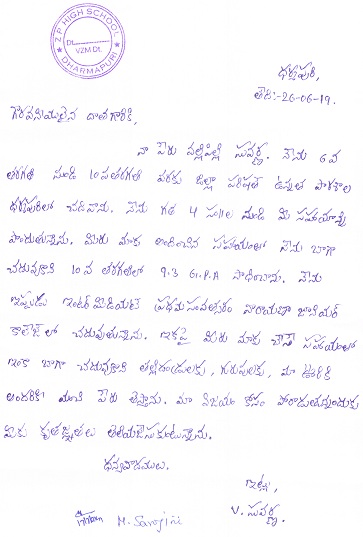 Z.P HIGH SCHOOL
Dt.
VZM Dt.
DHARMAPURI
ధర్మపురి,
తేది:-26-06-19.
గౌరవనీయులైన దాతగారికి,
నా పేరు వల్లిపిల్లి సువర్ణ. నేను 6వ
తరగతి నుండి 10వ తరగతి వరకు జిల్లా పరిషత్ ఉన్నత పాఠశాల
ధర్మపురిలో చదివాను. నేను గత 4 సం॥ల నుండి మీ సహాయాన్ని
పొందుతున్నాను. మీరు మాకు అందించిన సహాయంతో నేను బాగా
చదువుకొని 10వ తరగతిలో 9.3 G.P.A సాధించాను. నేను
ఇప్పుడు ఇంటర్మీడియట్ ప్రథమ సంవత్సరం నారాయణా జూనియర్
కాలేజ్ లో చదువుతున్నాను. ఇకపై మీరు మాకు చేసే సహాయంతో
ఇంకా బాగా చదువుకొని తల్లిదండ్రులకు, గురువులకు, మా ఊరికి
అందరికి మంచి పేరు తెస్తాను. మా విజయం కోసం పోరాడుతున్నందుకు
మీకు కృతజ్ఞతలు తెలియజేసుకుంటున్నాను.
ధన్యవాదములు.
ఇట్లు,
V. సువర్ణ.
M. Sarojini